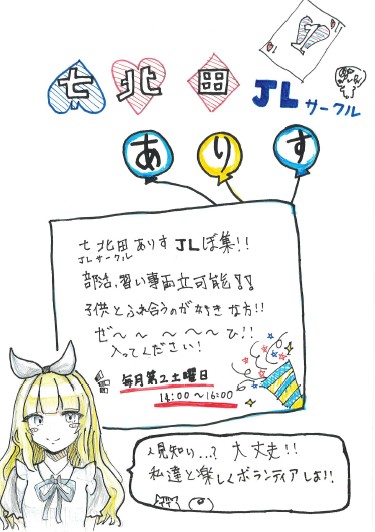 七北田
JLサークル
ありす
七北田ありすJLぼ集!!
JLサークル
部活、習い事両立可能!!
子供とふれ合うのが好きな方!!
ぜ〜〜〜〜〜ひ!!
入ってください!
毎月第2土曜日
14:00〜16:00
人見知り...? 大丈夫!!
私達と楽しくボランティアしよ!!